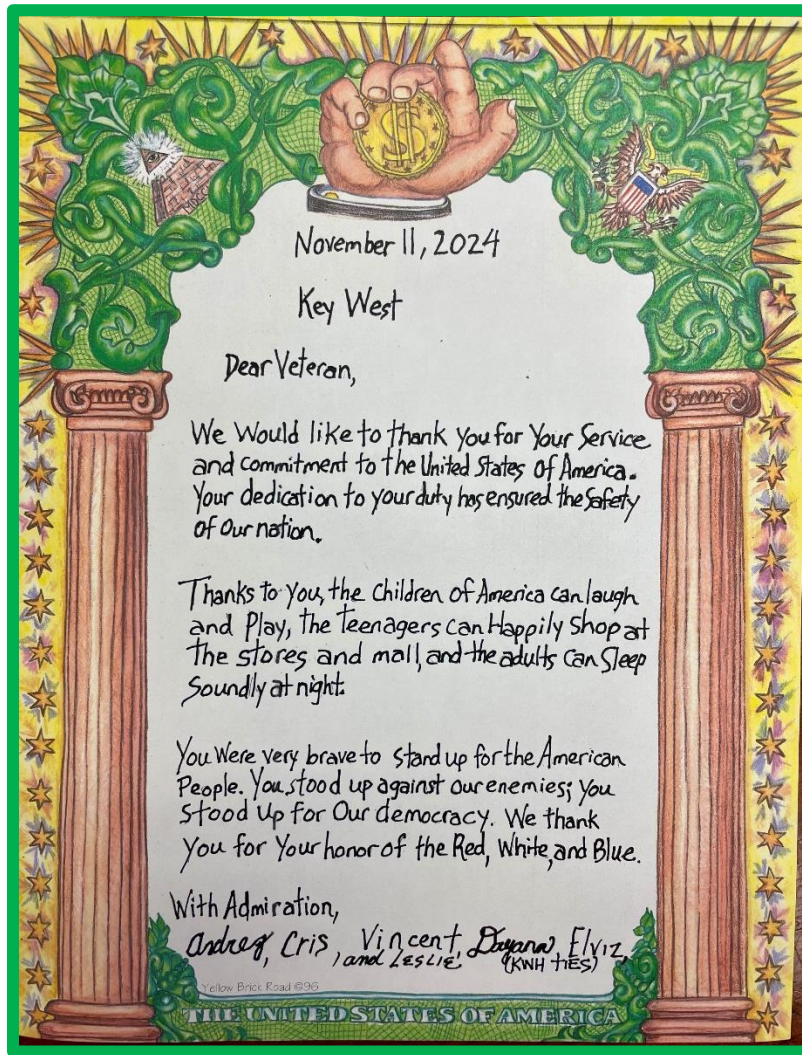 November 11, 2024
Key West
Dear Veteran,
We Would like to thank You for Your Service
and commitment to the United States of America.
Your dedication to your duty has ensured the Safety
of Our nation.
Thanks to You, the Children of America can laugh
and Play, the Teenagers can Happily Shop at
The stores and mall, and the adults can Sleep
Soundly at night.
You Were very brave to stand up for the American
People. You stood up against our enemies; you
Stood Up for Our democracy. We thank
You for Your honor of the Red, White, and Blue.
With Admiration,
Andrez, Cris, Vincent, Dayana, Elviz,
and LESLIE (KWH TIES)
Yellow Brick Road ©96
THE UNITED STATES OF AMERICA